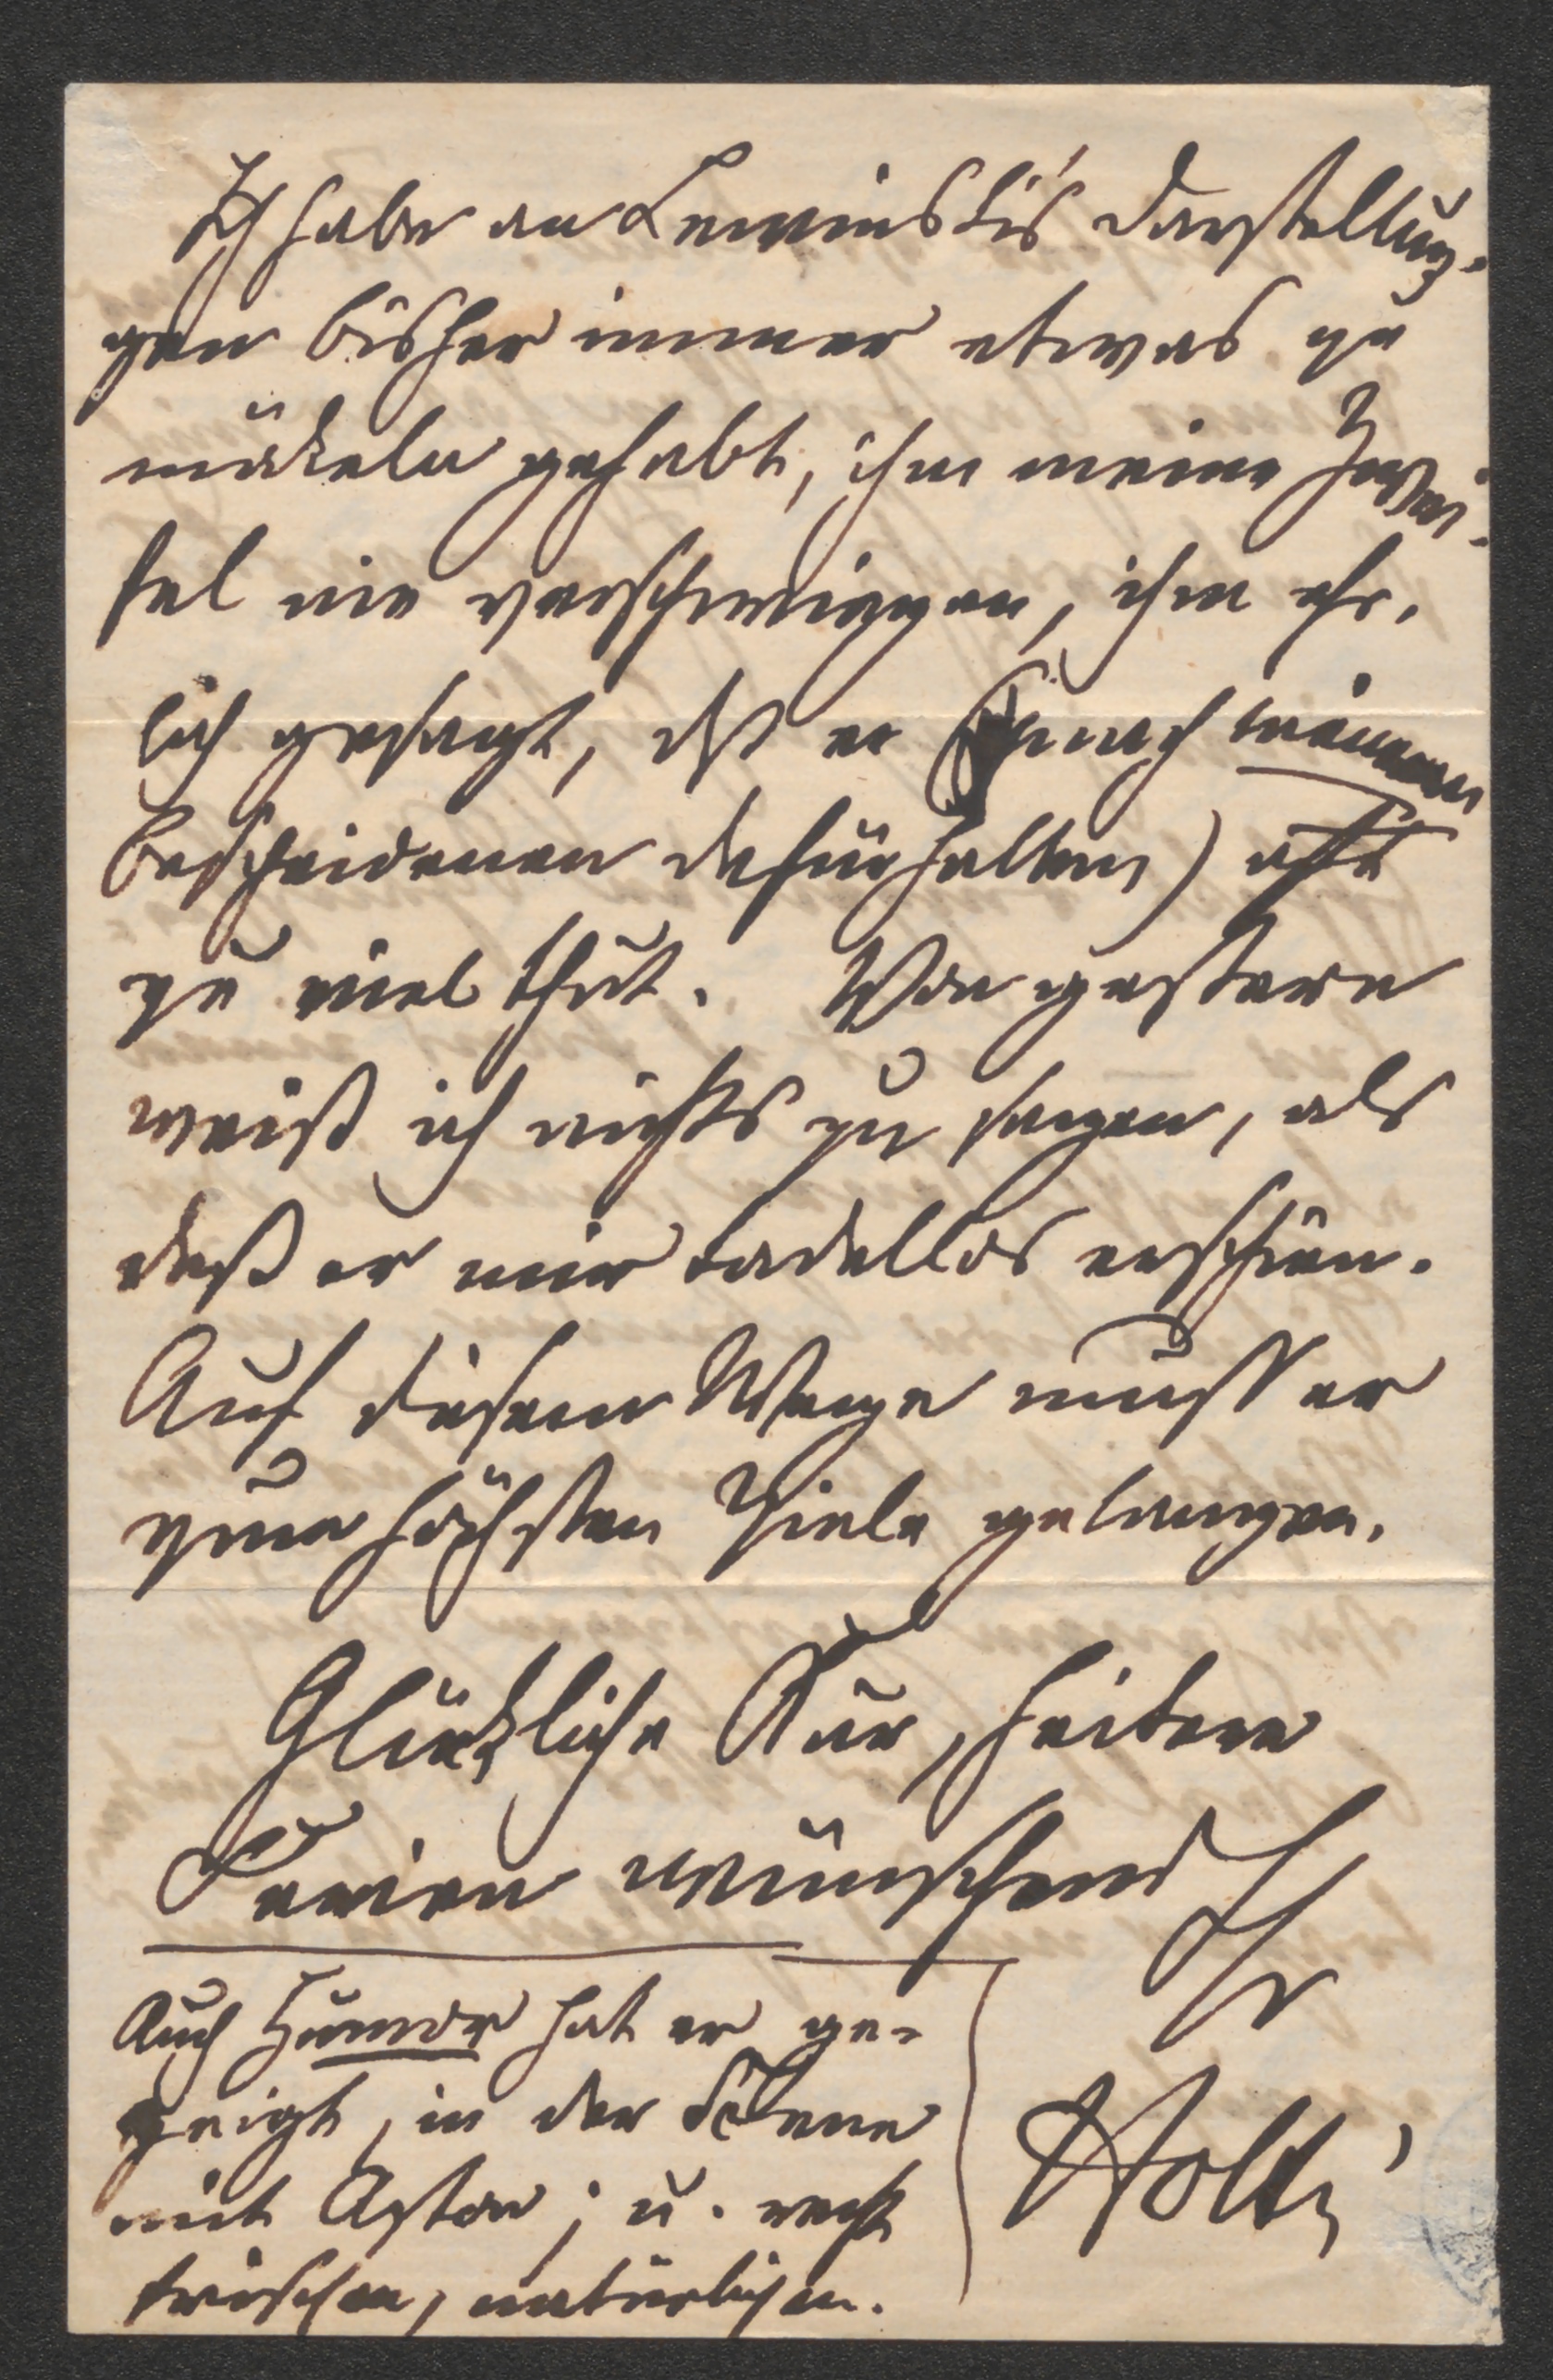 Ich habe an Lewinski's Darstellun-
gen bisher immer etwas zu
mäkeln gehabt, ihm meine Zwei-
fel nie verschwiegen, ihm ehr-
lich gesagt, dß er (nach meinem
bescheidenen Dafürhalten) oft
zu viel thut. Von gestern
weiß ich nichts zu sagen, als
daß er mir tadellos erschien.
Auf diesem Wege muß er
zum höchsten Ziele gelangen.
Glückliche Kur, heitere
Ferien wünschend
Ihr
Holtei
Auch Humor hat er ge-
zeigt, in der Scene
mit Aston; u. recht
frischen, natürlichen.